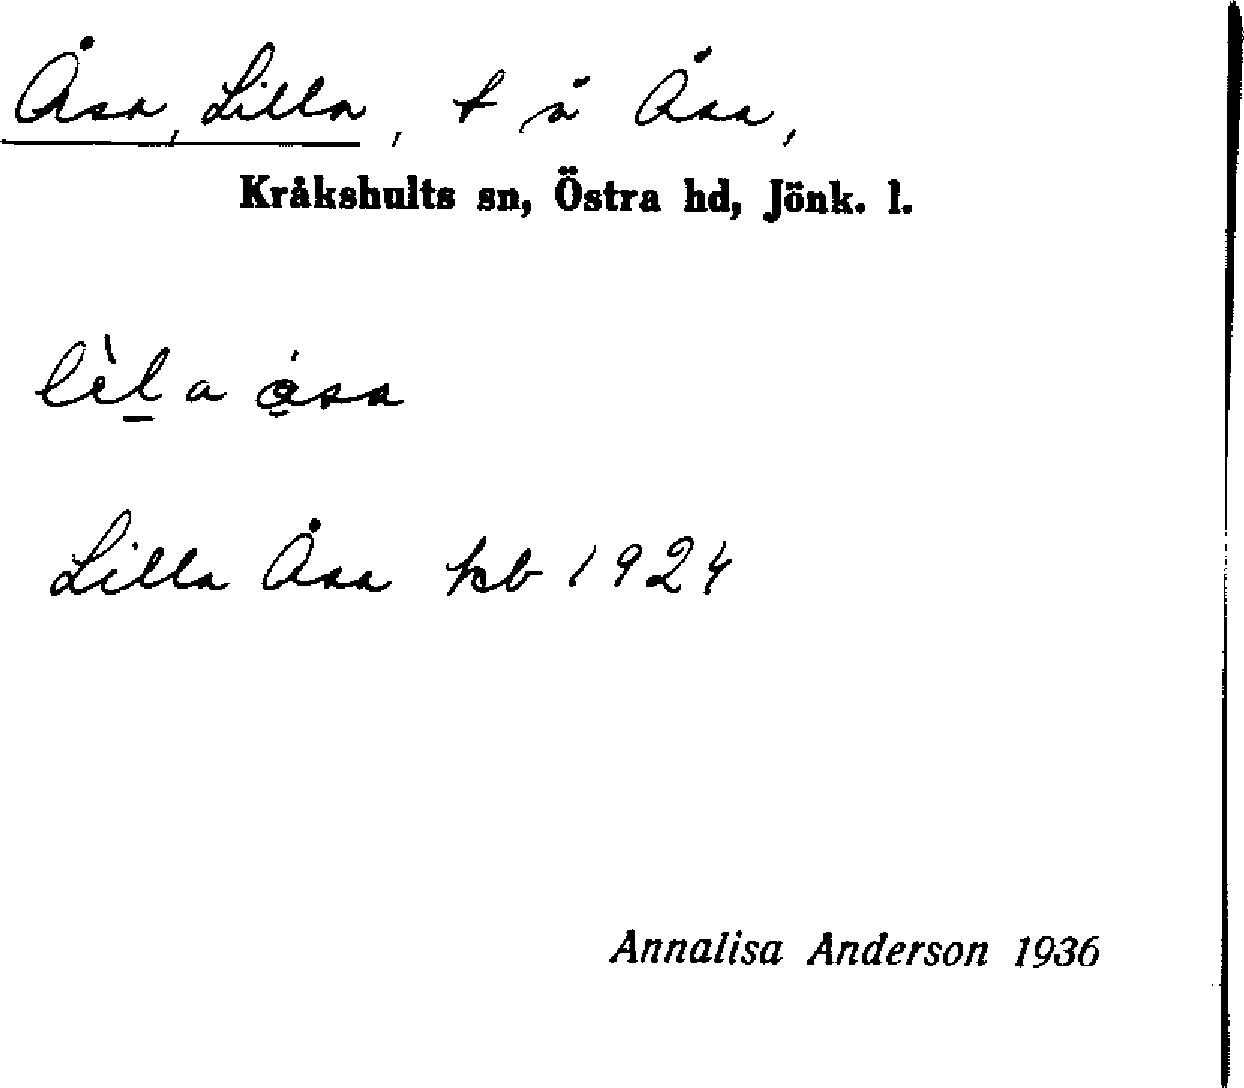 Åsa, Lilla, t å Åsa,
Kråkshults sn, Östra hd, Jönk. l.
Lilla Åsa kb 1924
Annalisa Anderson 1936